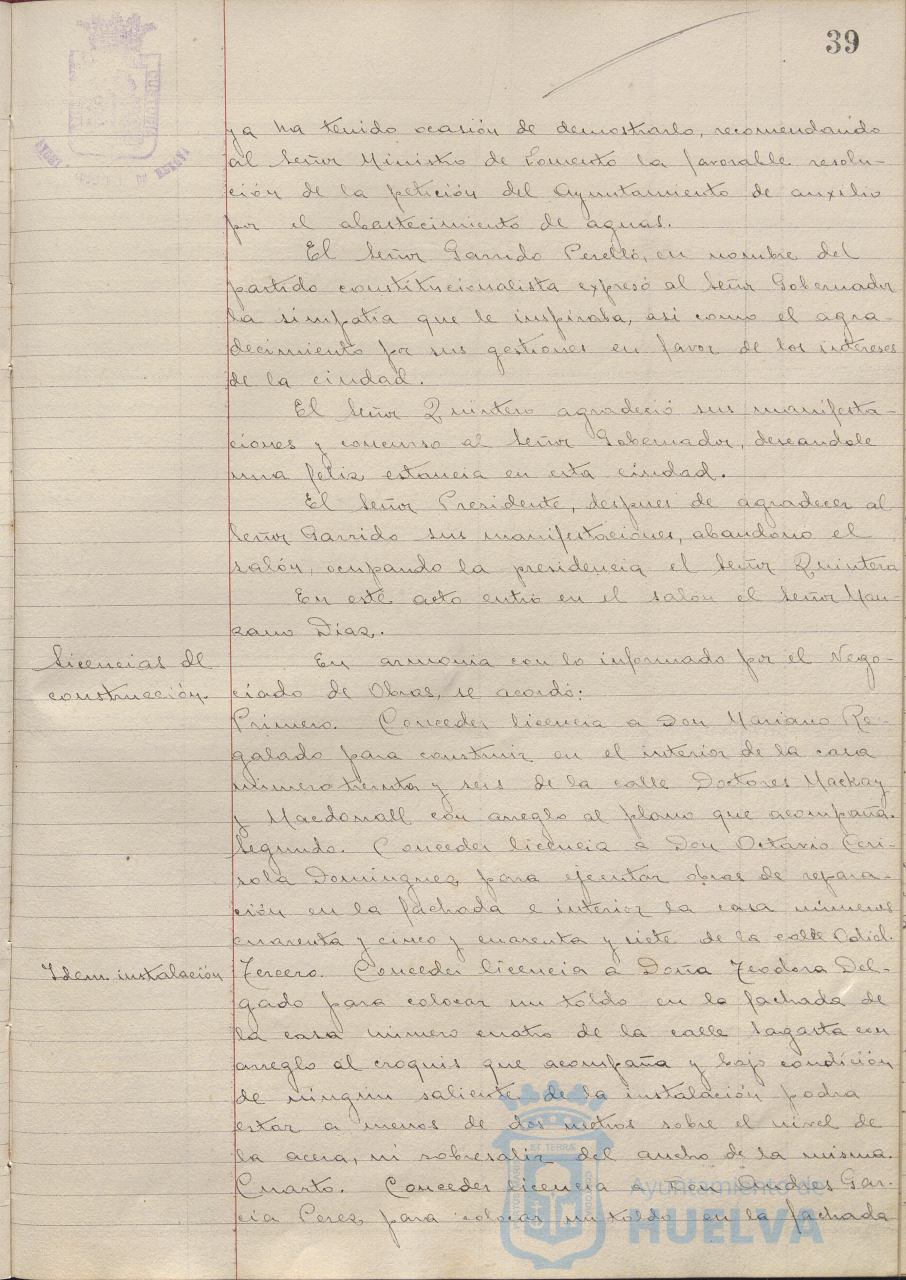 39
ya ha tenido ocasión de demostrarlo, recomendando
al Señor Ministro de Fomento la favorable resolu-
ción de la petición del Ayuntamiento de auxilio
por el abastecimiento de aguas.
El Señor Garrido Perelló, en nombre del
partido constitucionalista expresó al Señor Gobernador
la simpatia que le inspiraba, asi como el agra-
decimiento por sus gestiones en favor de los intereses
de la ciudad.
El Señor Quintero agradeció sus manifesta-
ciones y concurso al Señor Gobernador, deseandole
una feliz estancia en esta ciudad.
El Señor Presidente, despues de agradecer al
Señor Garrido sus manifestaciones, abandonó el
salón, ocupando la presidencia el Señor Quintero
En este acto entró en el salón el Señor Man-
zano Díaz.
Licencias de
construcción.
En armonia con lo informado por el Nego-
ciado de Obras, se acordó:
Primero. Conceder licencia a Don Mariano Re-
galado para construir en el interior de la casa
número treinta y seis de la calle Doctores Mackay
y Macdonall con arreglo al plano que acompaña.
Segundo. Conceder licencia a Don Octavio Ceri-
sola Dominguez para ejecutar obras de repara-
ción en la fachada e interior la casa números
cuarenta y cinco y cuarenta y siete de la calle Odiel.
Idem. instalación
Tercero. Conceder licencia a Doña Teodora Del-
gado para colocar un toldo en la fachada de
la casa número cuatro de la calle Sagasta con
arreglo al croquis que acompaña y bajo condición
de ningun saliente de la instalación podra
estar a menos de dos metros sobre el nivel de
la acera, ni sobresalir del ancho de la misma.
Cuarto. Conceder licencia a Don Andres Gar-
cia Perez para colocar un toldo en la fachada
Ayuntamiento de
HUELVA